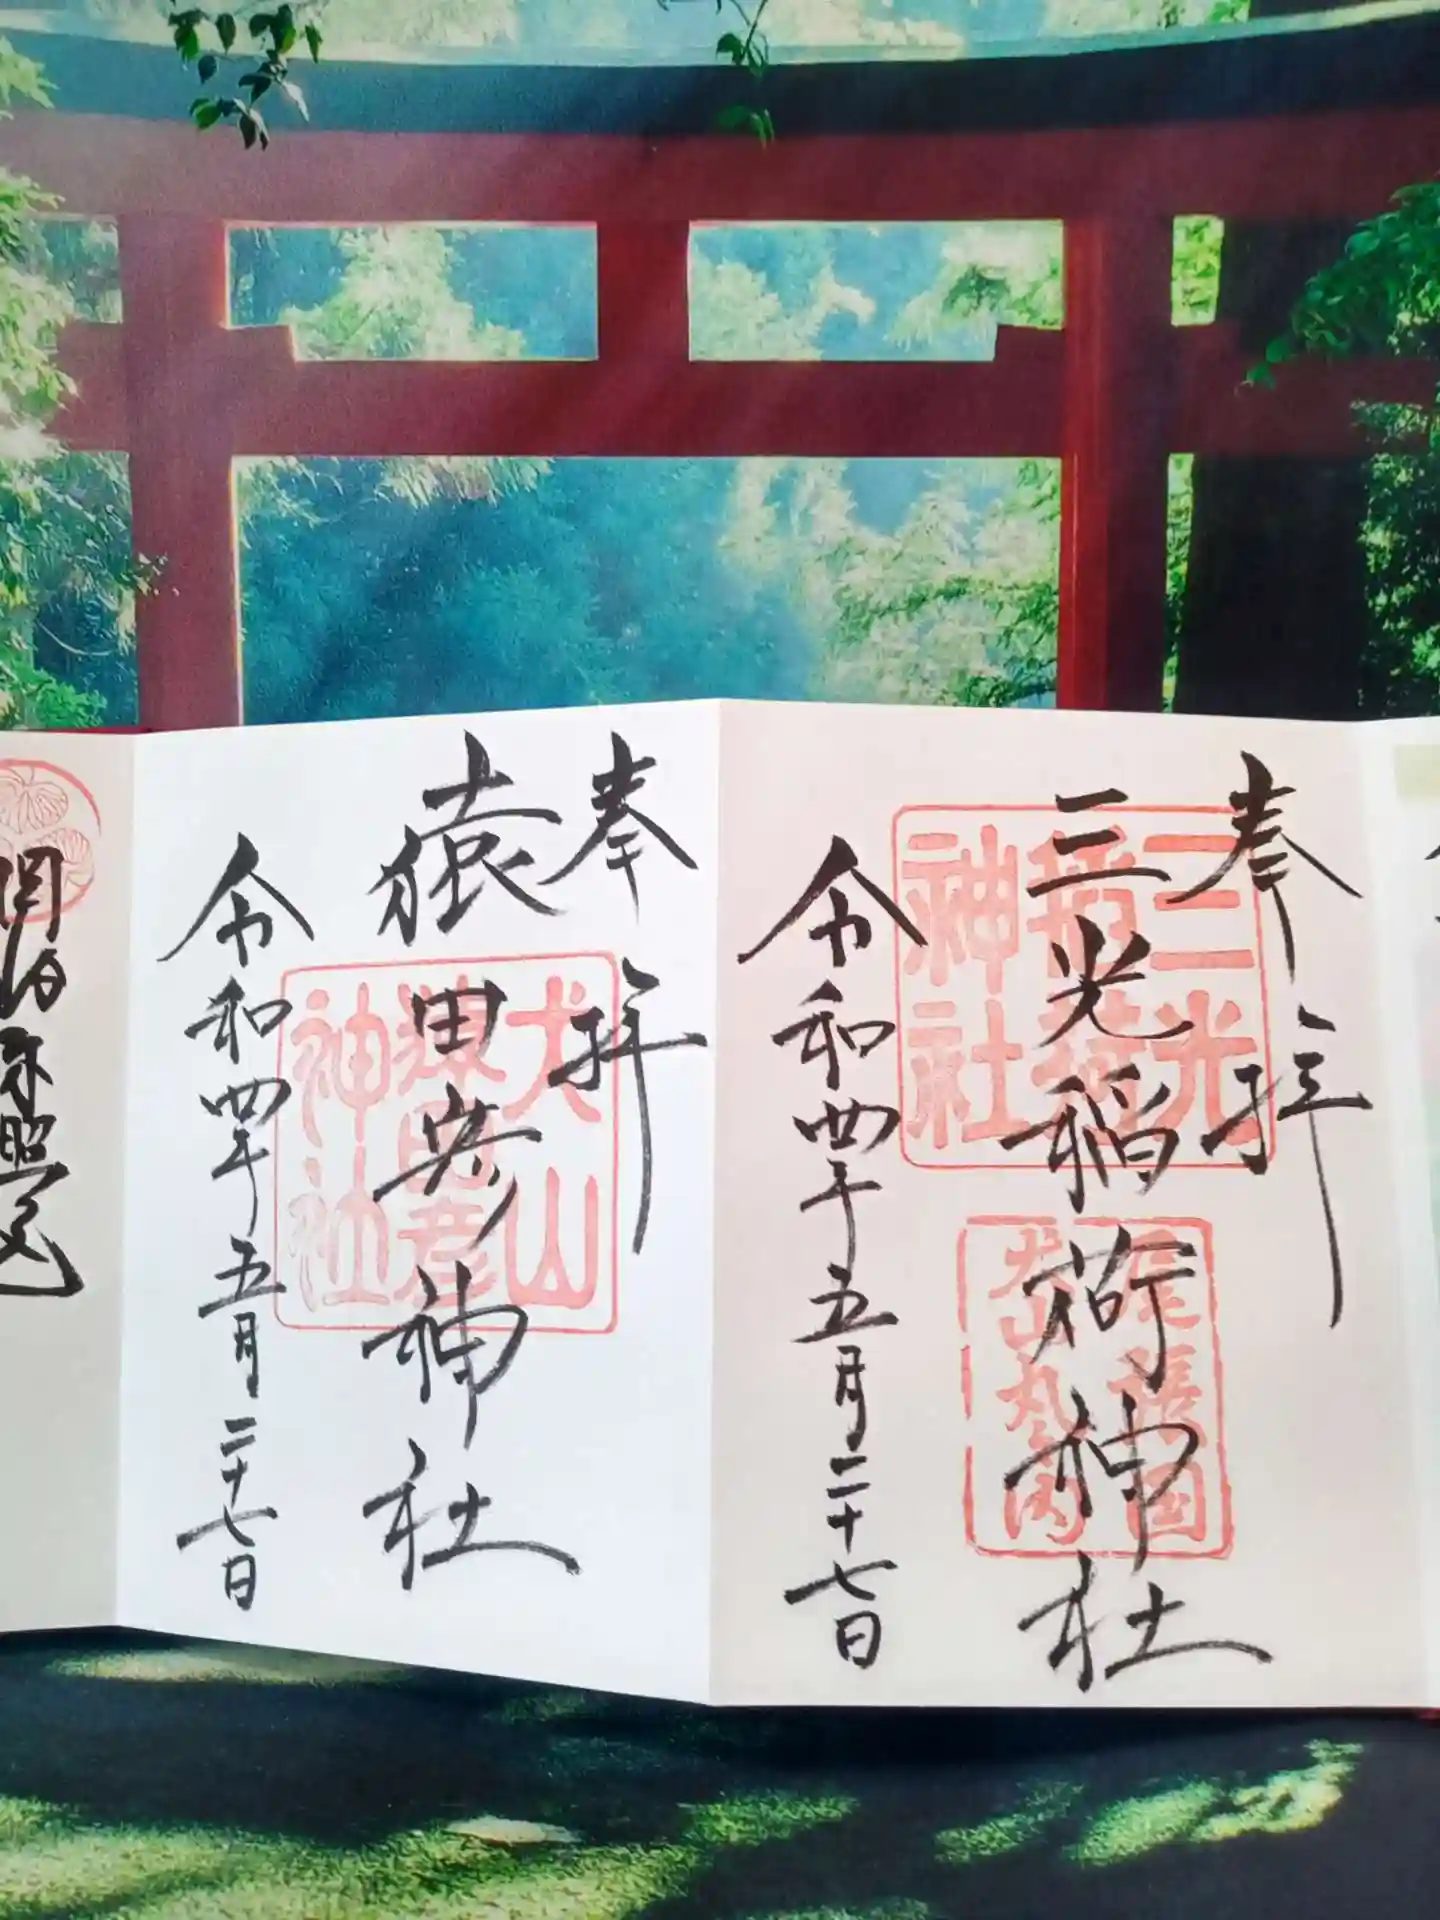 奉拝
三光稲荷神社
三光
稲荷
神社
尾張国
犬山丸の内
令和四年五月二十七日
奉拝
猿田彦神社
犬山
猿田彦
神社
令和四年五月二十七日